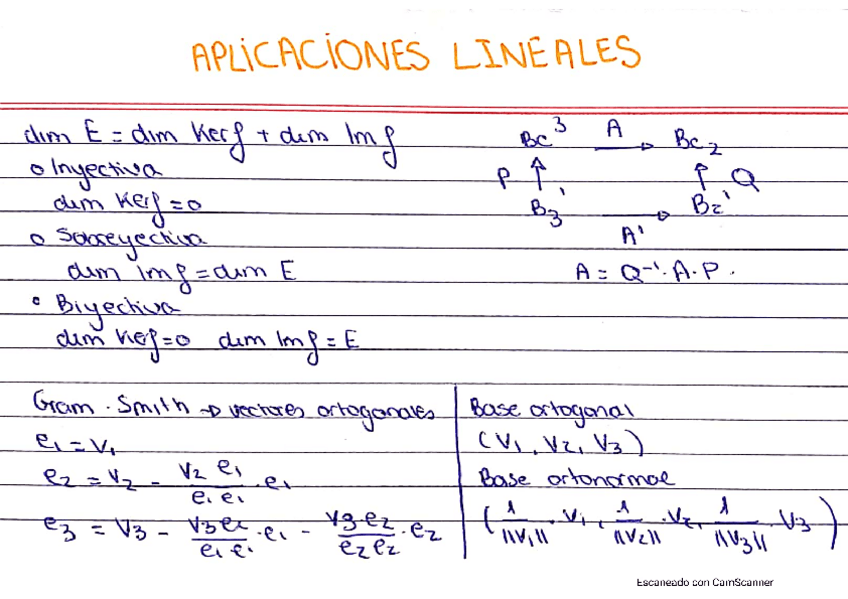 APLICACIONES LINEALES
dim E = dim Kerf + dim Imf
o Inyectiva
dim Kerf = 0
o Sobreyectiva
dim Imf = dim E
o Biyectiva
dim Kerf = 0 dim Imf = E
Bc³ A → Bc₂
P ↑ ↑ Q
B₃' → B₂'
A'
A = Q⁻¹. A. P.
Gram. Smith → vectores ortogonales
e₁ = v₁
e₂ = v₂ - (v₂ e₁)/(e₁ e₁) · e₁
e₃ = v₃ - (v₃ e₁)/(e₁ e₁) · e₁ - (v₃ · e₂)/(e₂ e₂) · e₂
Base ortogonal
(v₁, v₂, v₃)
Base ortonormal
(1/||v₁|| · v₁, 1/||v₂|| · v₂, 1/||v₃|| · v₃)
Escaneado con CamScanner